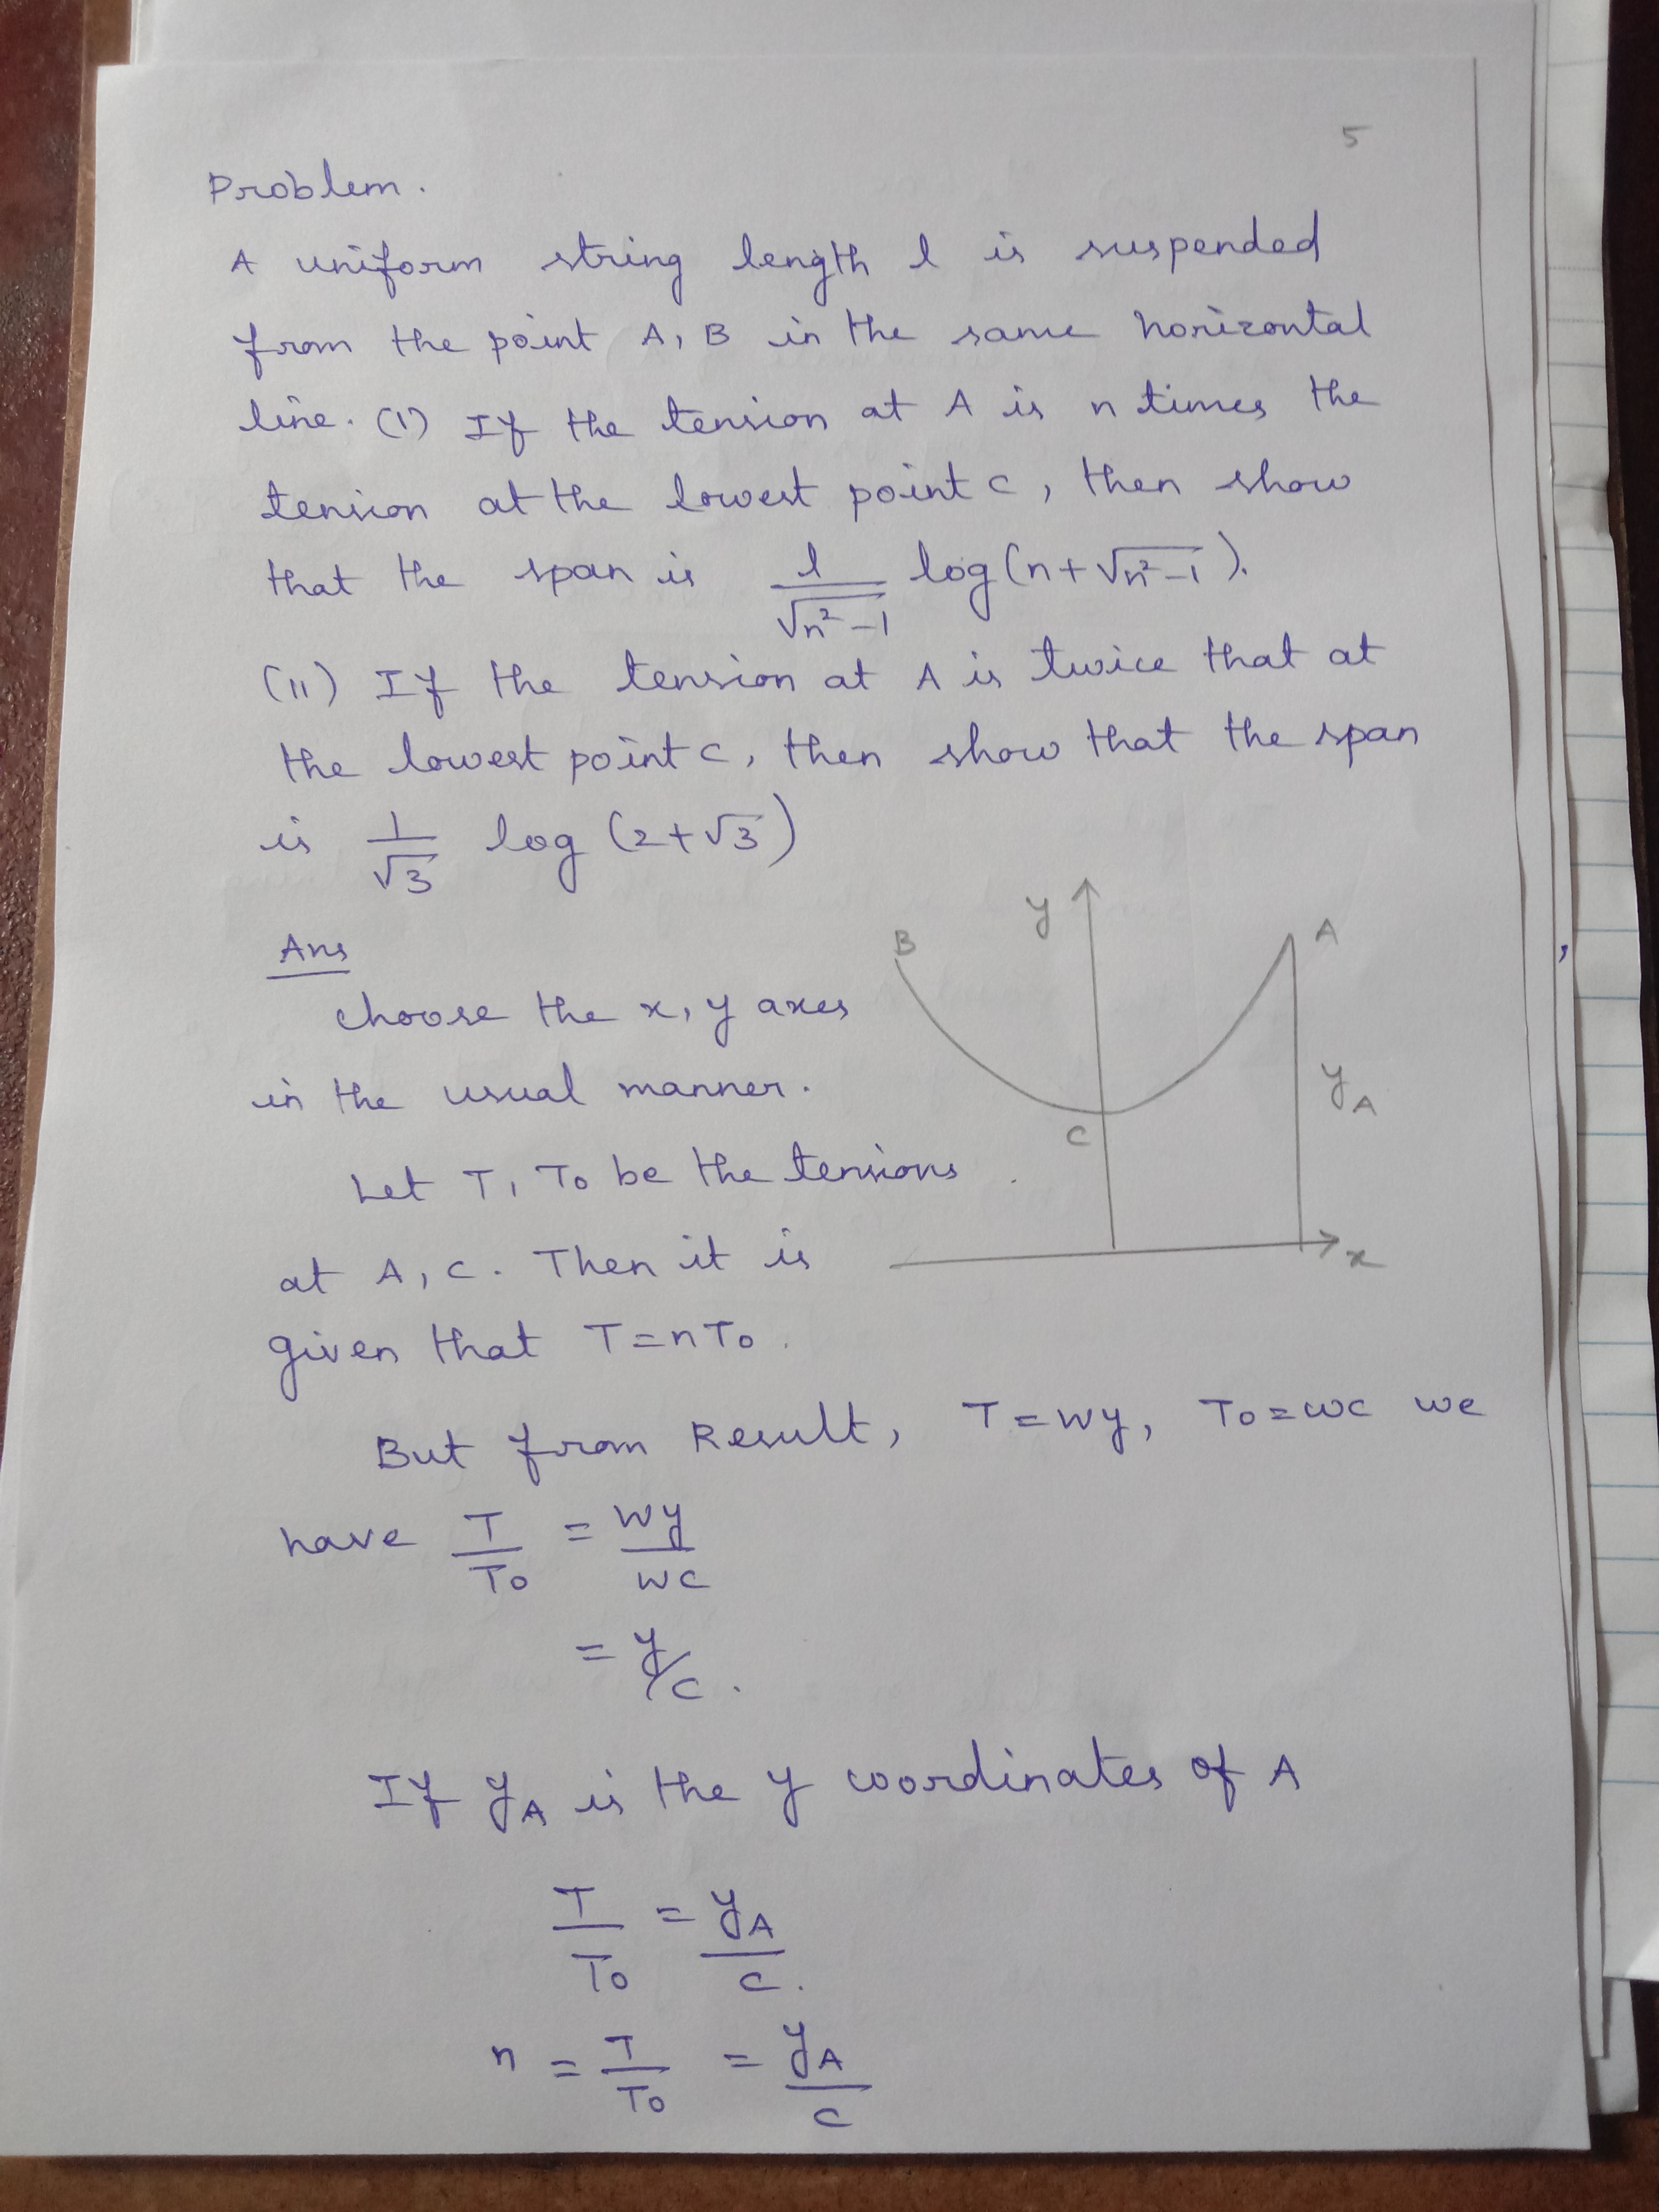 5
Problem.
A uniform string length l is suspended
from the point A, B in the same horizontal
line. (i) If the tension at A is n times the
tension at the lowest point C, then show
that the span is l/√(n²-1) log(n+√(n²-1)).
(ii) If the tension at A is twice that at
the lowest point C, then show that the span
is 1/√3 log (2+√3)
Ans
choose the x, y axes
in the usual manner.
Let T, T₀ be the tensions
at A, C. Then it is
given that T=nT₀.
B
y
A
C
y_A
x
But from Result, T=wy, T₀=wc we
have T/T₀ = wy/wc
= y/c.
If y_A is the y coordinates of A
T/T₀ = y_A/c.
n = T/T₀ = y_A/c